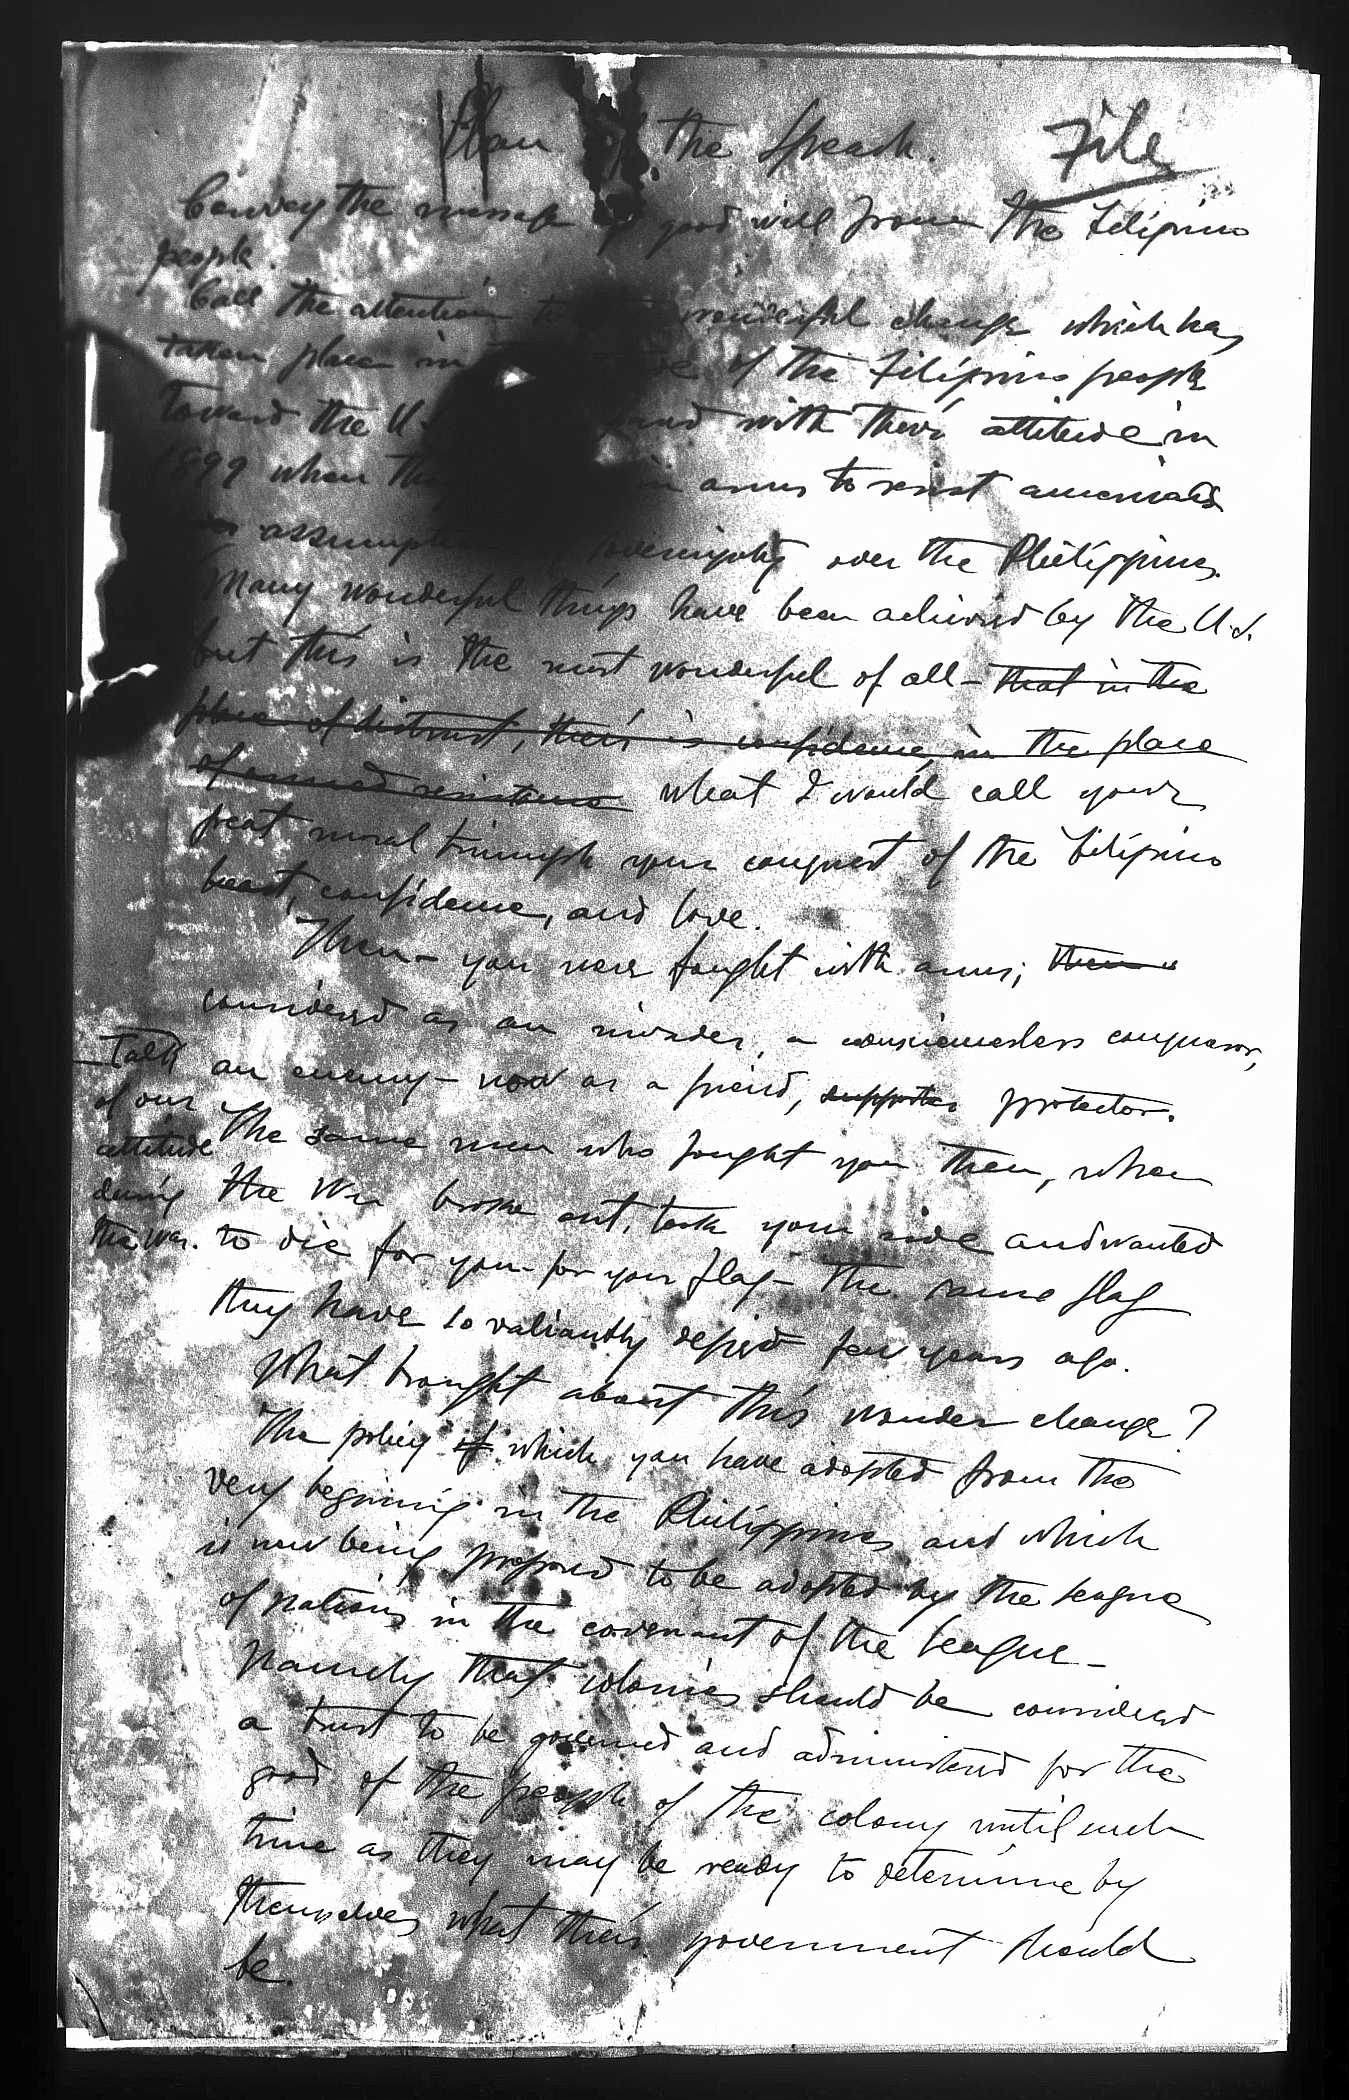 Plan of the Speech.
File
Convey the message of good will from the Filipino
people.
Call the attention to wonderful change which has
taken place in of the Filipino people
toward the U. with their attitude in
1899 when they in arms to resist americans
assumption sovereignty over the Philippines.
Many wonderful things have been achieved by the U.S.
but this is the most wonderful of all - that in the
place of distrust, their is confidence, in the place
of armed resistance what I would call your
great moral triumph your conquest of the Filipino
heart, confidence, and love.
Then - you were fought with arms; then
considered as an invader, a consciousless conqueror,
an enemy - now as a freind, supporter protector.
- Talk
of our
attitude
during
the War.
The same men who fought you then, when
the War broke out, took your side and wanted
to die for you - for your flag - the same flag
they have so valiantly defied few years ago.
What brought about this wonder change?
The policy of which you have adopted from the
very beginning in the Philippines and which
is now being proposed to be adopted by the league
of nations in the covenant of the league -
Namely that colonies should be considered
a trust to be governed and administered for the
good of the people of the colony until such
time as they may be ready to determine by
themselves what their government should
be.